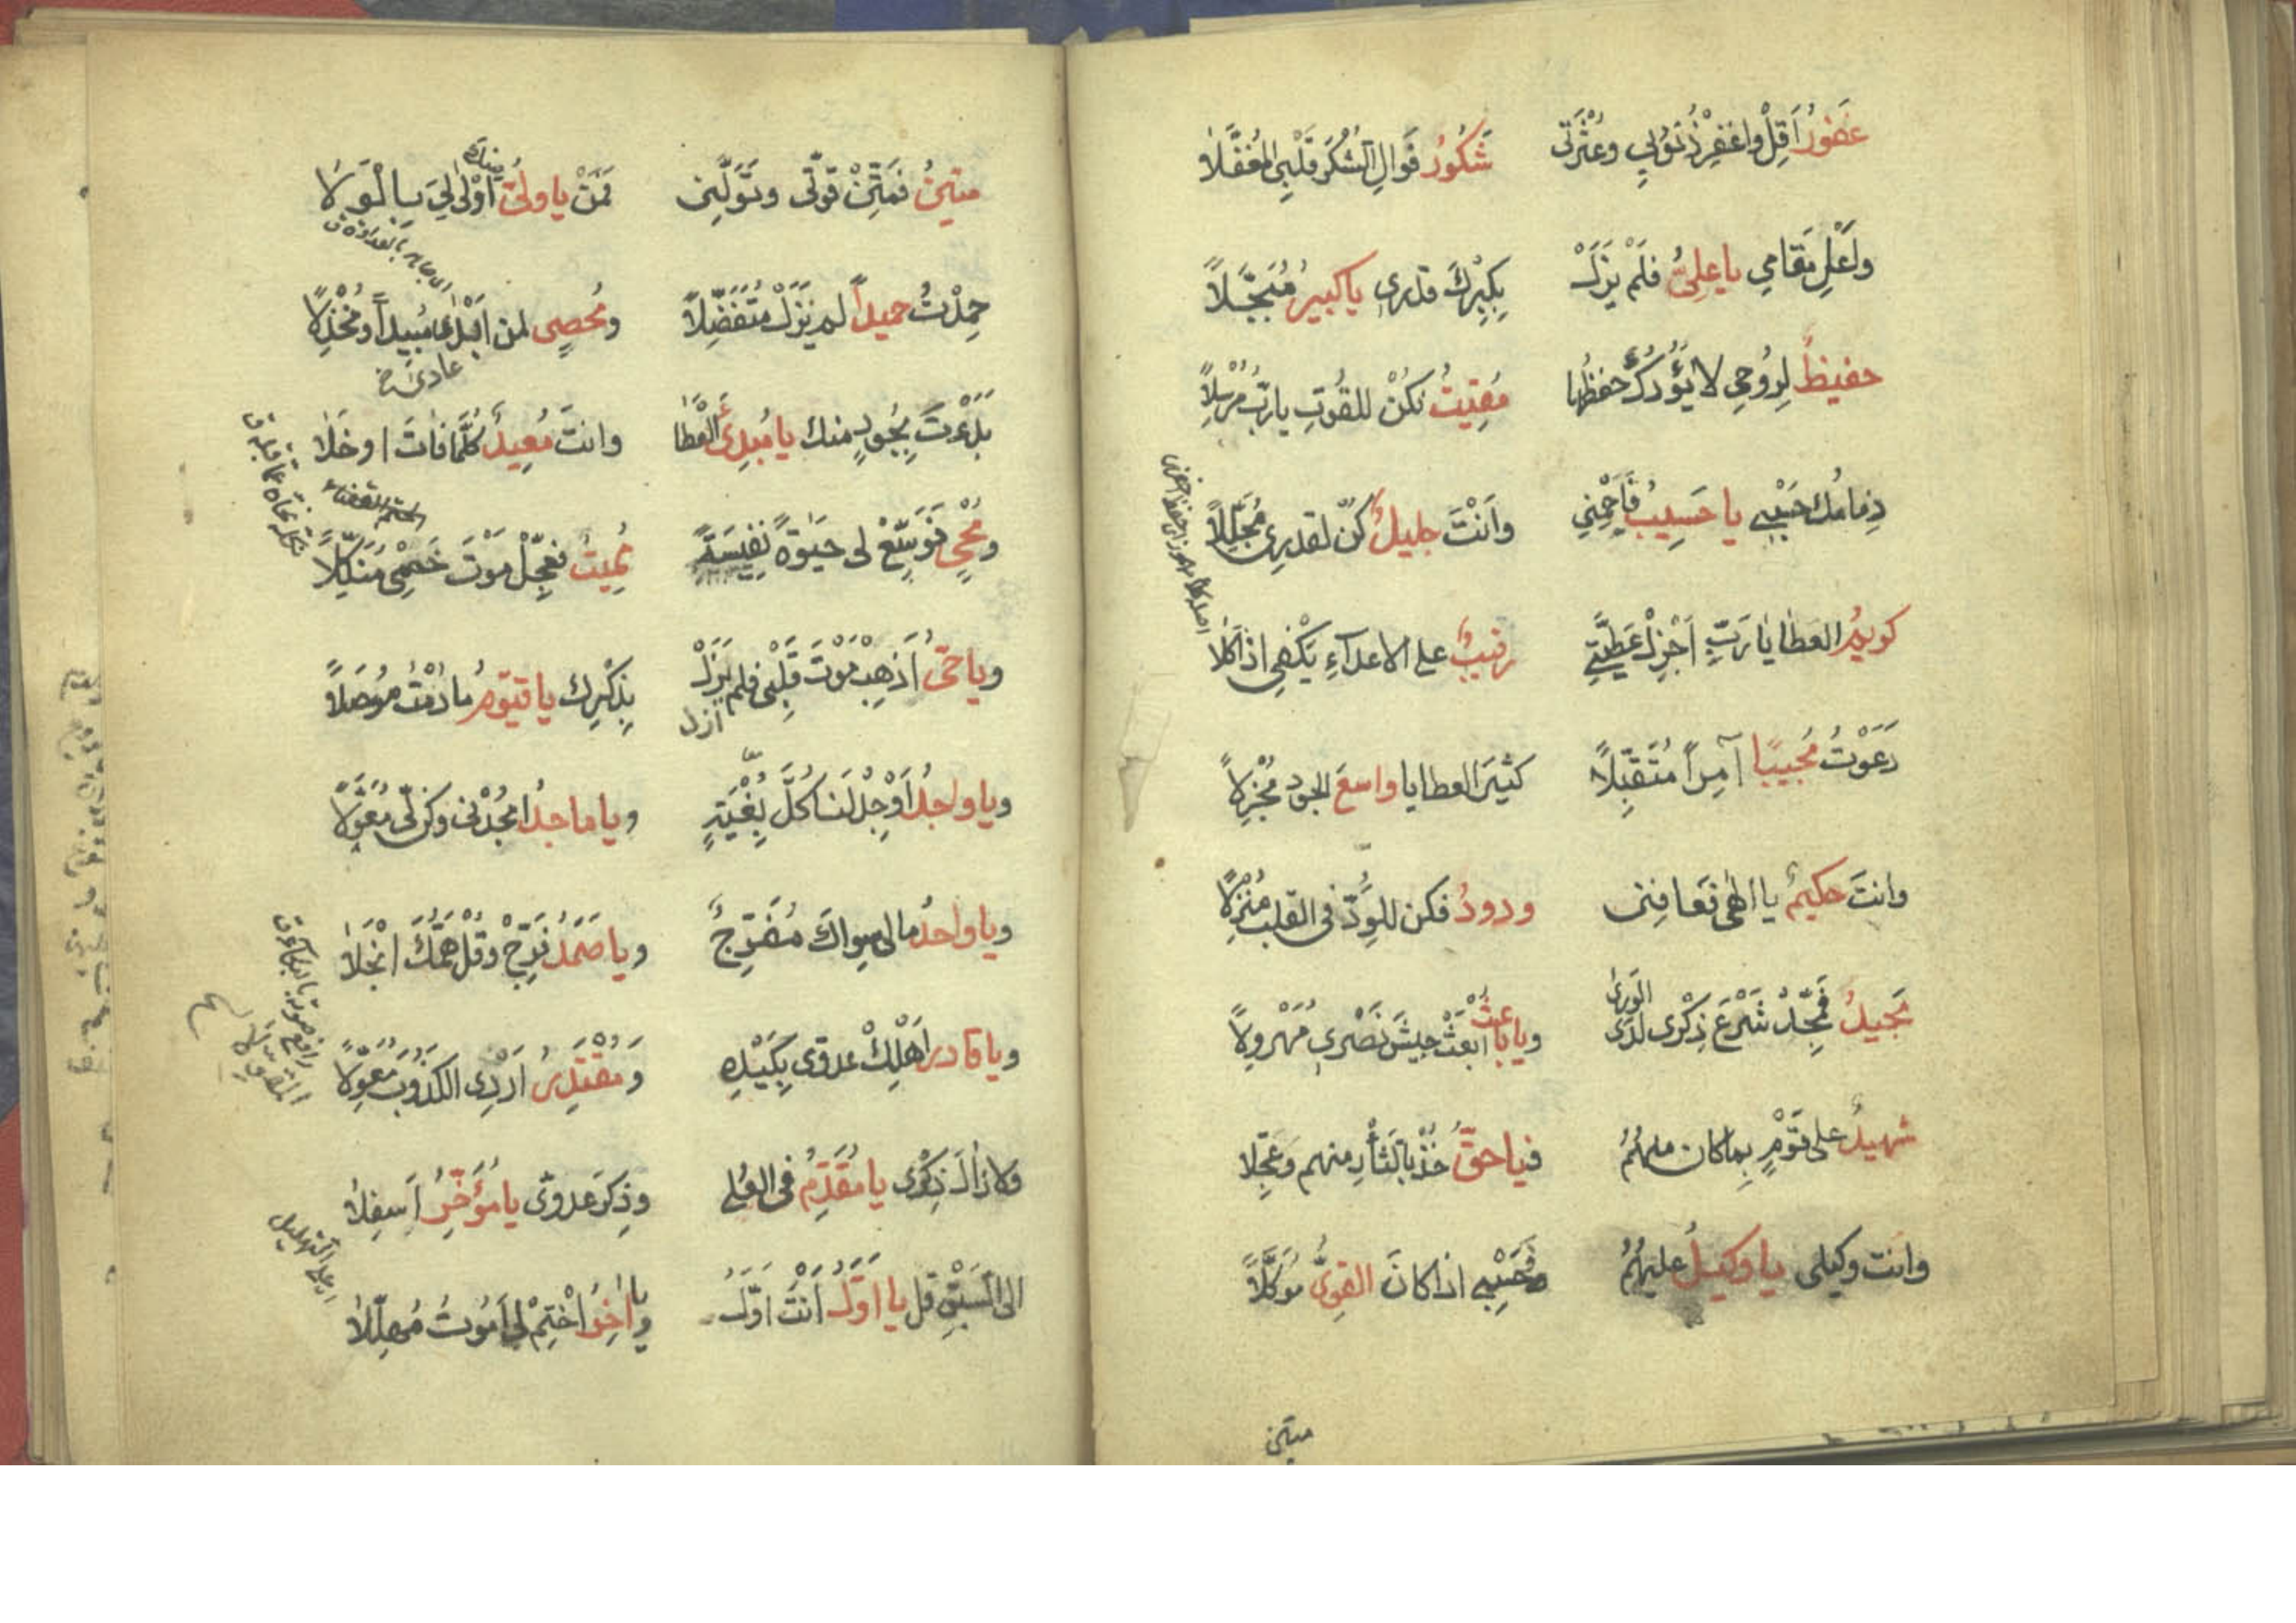 غفورٌ اَقِلْ واغفِرْ ذُنُوبي وعَثْرَتي شَكُورُ فَوالِ الشُكرَ قَلْبِي المُغَفَّلَا
وَاَعْلِ مَقامي ياعَلِيُّ فلَمْ يَزَلْ بِكِبْرِكَ قدري ياكبيرُ مُبَجَّلاً
حفيظٌ لِرُوحي لا يَؤُدُكَ حفظُها مُقِيتُ نَكُنْ للقُوتِ يارَبُّ مُرْسِلاً
ذِمامُك حَسْبِي يا حَسِيبُ فَاَحْمِنِي وَاَنْتَ جليلٌ كُنّ لقدرِي مُجَلِّلاً
كريمُ العطايا يَا رَبِّ اَجْزِلْ عَطِيَّتِي رقيبٌ على الاعدآءِ يَكْفِي اذا كَلَا
دَعَوْتُ مُجيبًا آمِراً مُتَقَبِّلاً كثيرَ العطايا واسعَ الجود مُجْزِلاً
وانتَ حكيمٌ يا الٰهى فَعَافِنى ودودُ فكن للوُدِّ فى القلب مُنْزِلاً
مَجيدُ فَمَجِّدْ شَرْعَ ذِكْرى لدَى الوَرَىٰ وياباعثُ ابعَثْ جيشَ نَصْرِي مُهَرْوِلاً
شهيدٌ على قَوْمٍ بِما كان منهُمُ فياحقُّ خُذْ بالثَأْرِ منهم وعَجِّلا
وانت وكيلى يا وكيلُ عليهُمُ فَحَسْبِي اذا كانَ القوِىُّ مُوَكَّلاً
متين
متينُ فَمَتِّنْ قوّتى وتَوَلَّنِى فَمَنْ ياولىُّ اَوْلىٰ لِيَ بِالْوَلَا
حمِدْتُ حميداً لم يَزَلْ مُتَفَضِّلاً ومُحصِى لمن مُبِيداً ومُخْذِلاً
بَدَءْتَ بِجُودٍ منك يا مُبدِئَ العطَا وانتَ مُعِيدُ كُلَّمَا فاتَ اوخَلَا
ومُحْيٍ فَوَسِّعْ لى حَيٰوةً نفِيسَةً مُمِيتُ فعَجِّلْ مَوْتَ خَصْمِى مُنَكِّلاً
وياحَىُّ اَذْهِبْ مَوْتَ قَلْبِى فلم يَزَلْ بِذِكْرِك ياقيّوم مَا دُمْتُ مُوصَلاً
ازل
وياواجِدُ اَوْجِدْ لَنا كُلَّ بُغْيَةٍ وياماجدُ امْجُدْنى وكن لِى مُعَوِّلاً
وياواحدُ مالى سِواكَ مُفَرِّجٌ وياصَمَدُ فَرِّجْ وقُلْ هَمُّكَ انْجَلَا
وياقادر اَهْلِكْ عدوّى بِكَيْدِهِ ومُقْتَدِرُ اَرْدِى الكَذُوبَ مُعَوِّلاً
ولازالَ ذِكْرى يامُقَدِّمُ فى العُلى وذِكرَ عدوّى يامُؤَخِّرُ اَسفِلَا
الى السَبْقِ قل يا اوّلُ اَنْتَ اوّلُ ويا اٰخِرُ اخْتِمْ لى اَمُوتُ مُهَلِّلَا